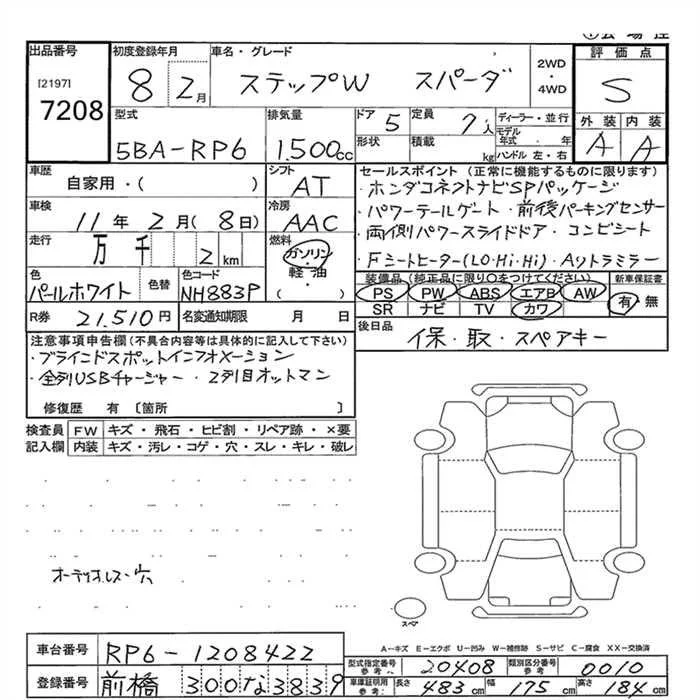 出品番号
[2197]
7208
初度登録年月
8 2月
車名・グレード
ステップW スパーダ
2WD
・
4WD
評価点
S
外装 内装
A A
型式
5BA-RP6
排気量
1,500cc
ドア 5
形状
定員 7人
積載 kg
ディーラー・並行
モデル年式 ・ 年
ハンドル 左・右
車歴
自家用・( )
シフト
AT
車検
11年 2月 (8日)
冷房
AAC
走行
万 千 2 km
燃料
ガソリン
・
軽油
( )
色
パールホワイト
色替
色コード
NH883P
R券 21,510円
名変通知期限 月 日
セールスポイント (正常に機能するものに限ります)
・ホンダコネクトナビSPパッケージ
・パワーテールゲート・前後パーキングセンサー
・両側パワースライドドア・コンビシート
・Fシートヒーター(LO・Hi・Hi)・Aットラミラー
装備品 (純正品に限り○をつけてください)
PS PW ABS エアB AW
SR ナビ TV カワ
新車保証書
有・無
後日品
保・取・スペアキー
注意事項申告欄 (不具合内容等は具体的に記入して下さい)
・ブラインドスポットインフォメーション
・全列USBチャージャー・2列目オットマン
修復歴 有 〔箇所 〕
検査員記入欄
FW キズ・飛石・ヒビ割・リペア跡・×要
内装 キズ・汚レ・コゲ・穴・スレ・キレ・破レ
オーディオレス穴
スペア
A-キズ E-エクボ U-凹み W-補修跡 S-サビ C-腐食 XX-交換済
車台番号 RP6-1208422
登録番号 前橋 300な3839
型式指定番号 参考 20408
類別区分番号 参考 0010
車庫証明用 参考 長さ 483cm 幅 175cm 高さ 184cm